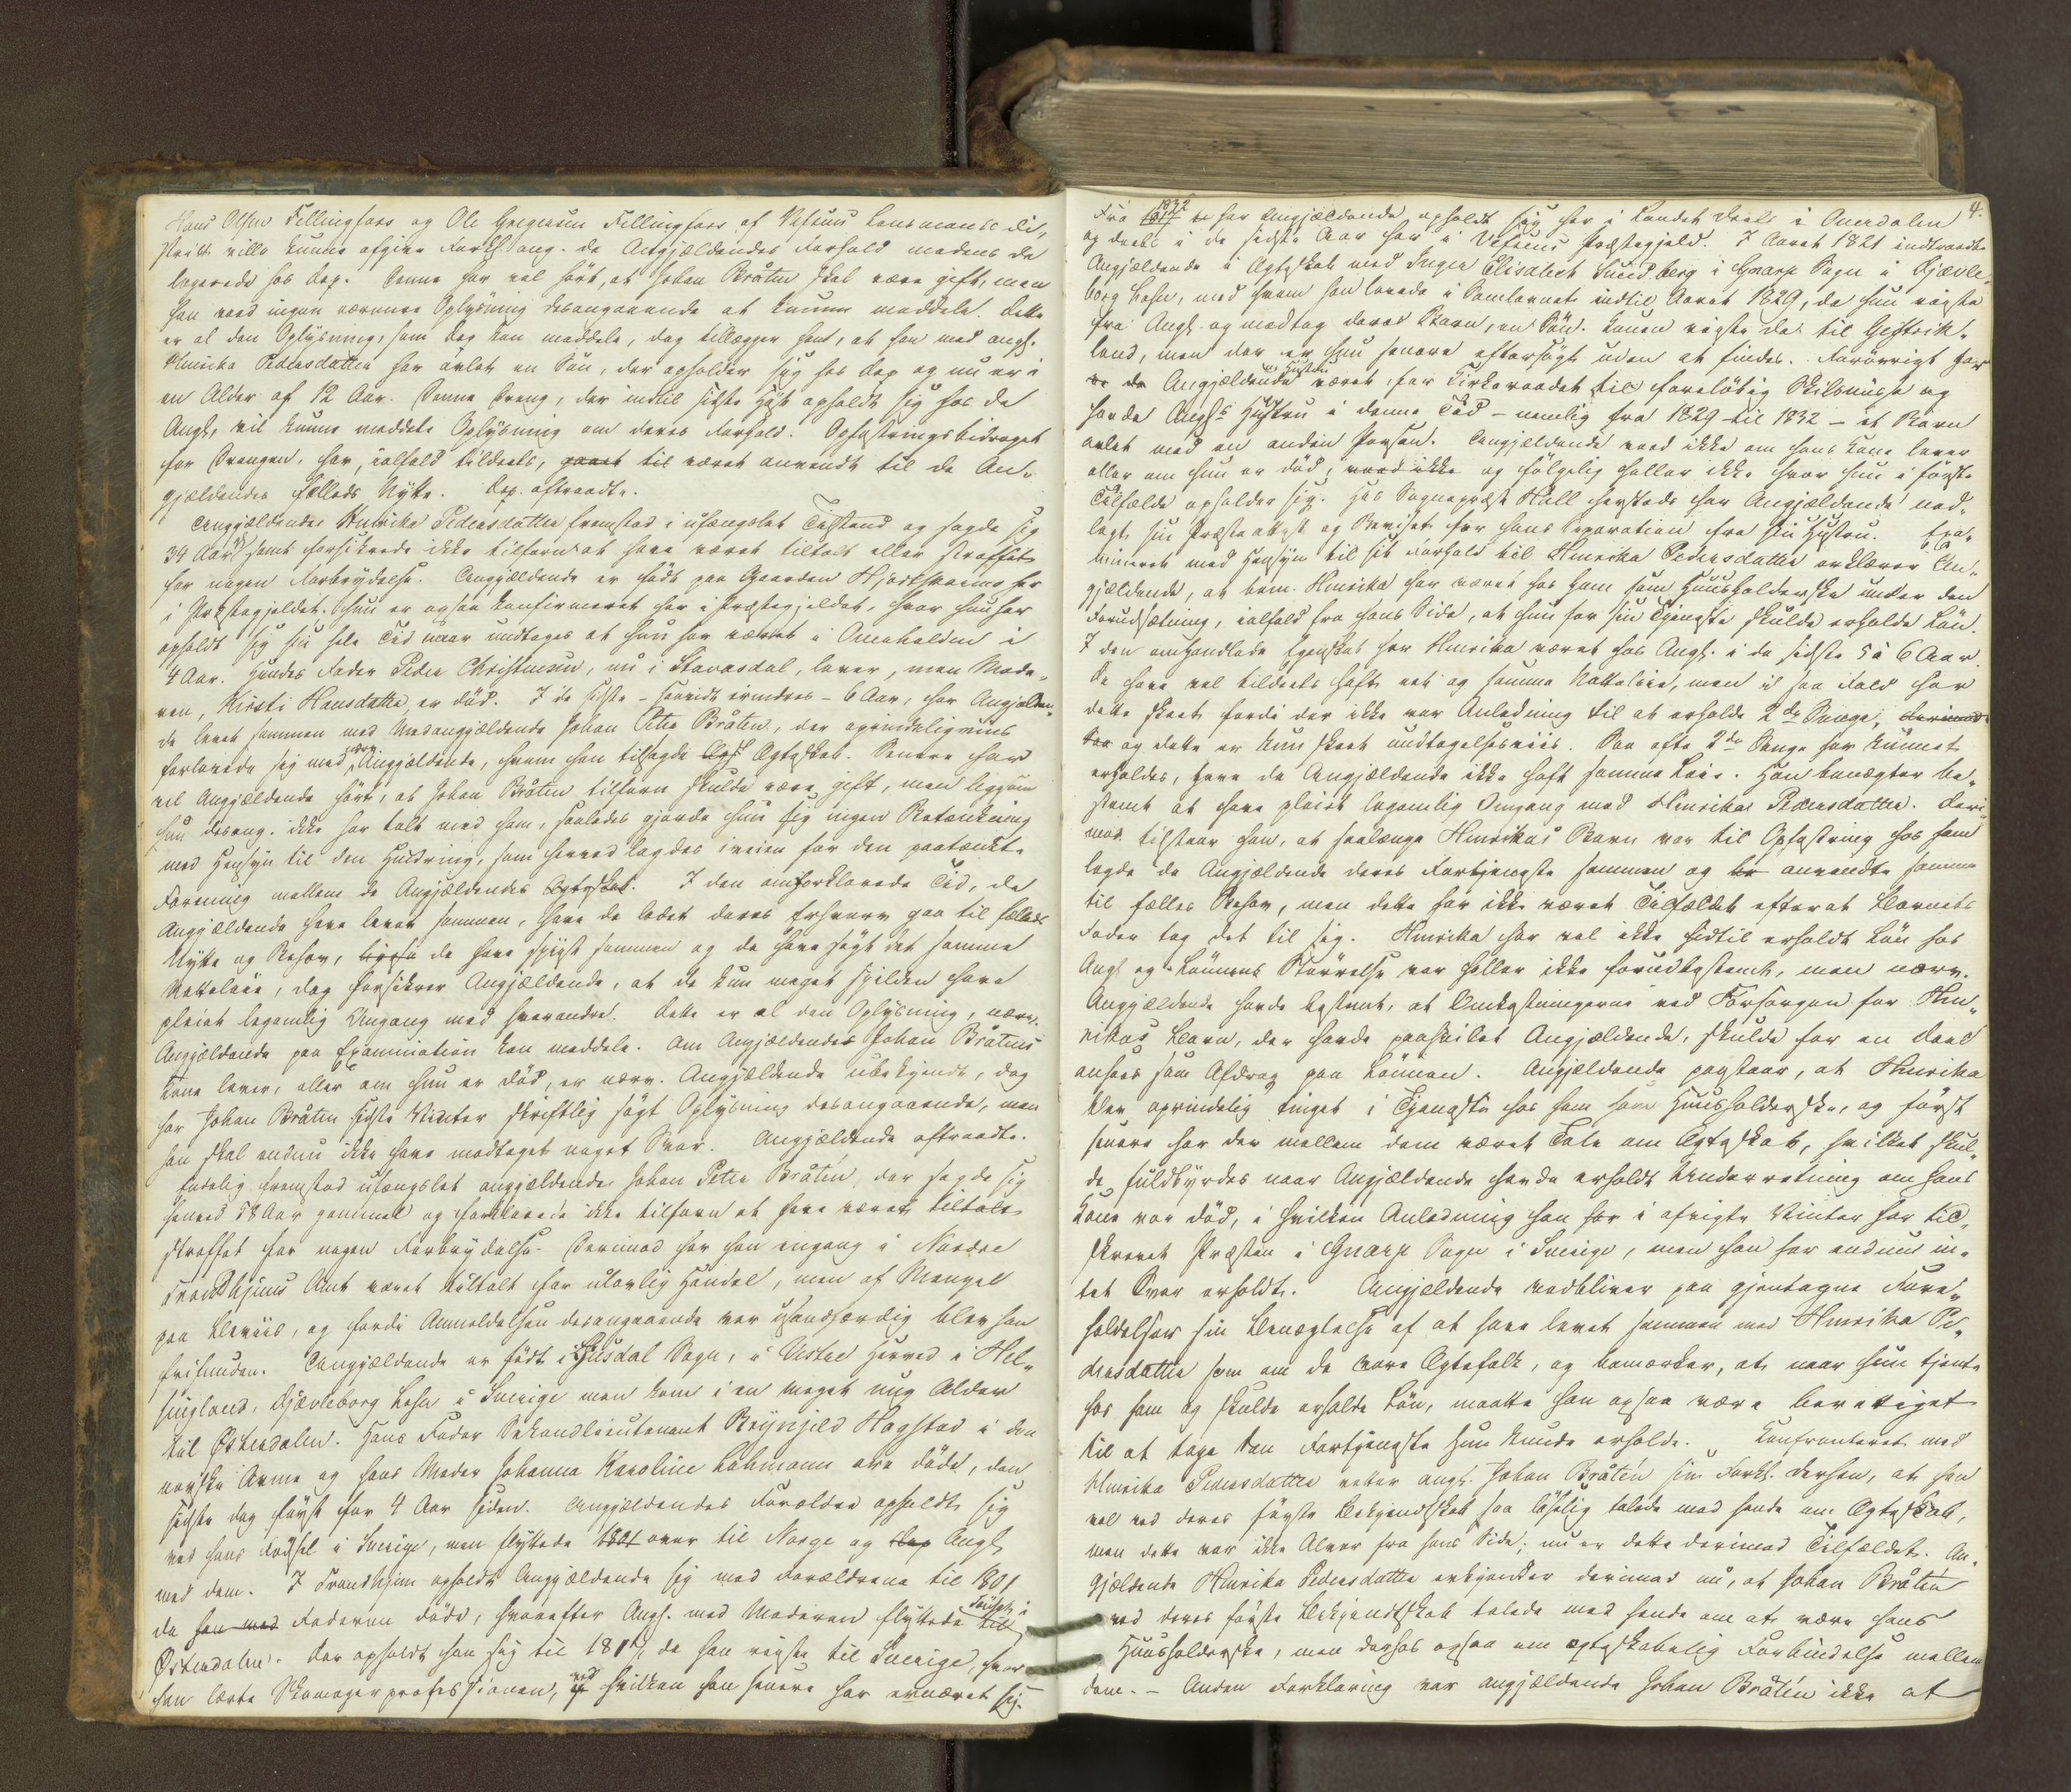 Hans Olsen Fellingfors og Ole Gregersen Fellingfors af Vefsens Lensmands Di-
strikt ville kunne afgive Forkl. ang. de Angjældendes Forhold medens de
logerede hos Dep. Denne har vel hørt, at Johan Bråten skal være gift, men
han veed ingen nærmere Oplysning desangaaende at kunne meddele. Dette
er al den Oplysning, som Dep kan meddele, dog tillægger han, at han med angj.
Henrika Pedersdatter har avlet en Søn, der opholder sig hos Dep og nu er i
en Alder af 12 Aar. Denne Dreng, der indtil sidste Høst opholdt sig hos de
Angj, vil kunne meddele Oplysning om deres Forhold. Opfostringsbidraget
for Drengen, har, ialfald tildeels, gaaet til været anvendt til de An-
gjældendes fælleds Nytte. Dep. aftraadte.
Angjældende Henrika Pedersdatter fremstod i ufængslet Tilstand og sagde sig
34 Aar gl samt forsikrede ikke tilforn at have været tiltalt eller straffet
for nogen Forbrydelse. Angjældende er født paa Gaarden Hjortskarmo her
i Præstegjeldet. Hun er ogsaa konfirmeret her i Præstegjeldet, hvor hun har
opholdt sig sin hele Tid naar undtages at hun har været i Omehalden i
4 Aar. Hendes Fader Peder Christensen, nu i Stavasdal, lever, men Mode-
ren, Kirsti Hansdatter, er død. I de sidste – henvidt erindres – 6 Aar, har Angjælden-
de levet sammen med Medangjældende Johan Peter Bråten, der oprindeligviis
forlovede sig med nærv. Angjældende, hvem han tilsagde Egts Ægteskab. Senere har
vel Angjældende hørt, at Johan Bråten tilforn skulde være gift, men ligesom
hun desang. ikke har talt med ham, saaledes gjorde hun sig ingen Betænkning
med Hensyn til den Hindring, som herved lagdes iveien for den paatænkte
Forening mellem de Angjældendes Ægteskab. I den omforklarede Tid, de
Angjældende have levet sammen, have de ladet deres Erhverv gaa til fælleds
Nytte og Behov, ligesaa de have spiist sammen og de have søgt det samme
Natteleie, dog forsikrer Angjældende, at de kun meget sjelden have
pleiet legemlig Omgang med hverandre. Dette er al den Oplysning, nærv.
Angjældende paa Examination kan meddele. Om Angjældendes Johan Bråtens
Kone lever, eller om hun er død, er nærv. Angjældende ubekjendt, dog
har Johan Bråten sidste Vinter skriftlig søgt Oplysning desangaaende, men
han skal endnu ikke have modtaget noget Svar. Angjældende aftraadte.
Endelig fremstod ufængslet angjældende Johan Peter Bråten, der sagde sig
henved 58 Aar gammel og forklarede ikke tilforn at have været tiltalt
straffet for nogen Forbrydelse. Derimod har han engang i Nordre
Trondhjems Amt været tiltalt for ulovlig Handel, men af Mangel
paa Beviis, og fordi Anmeldelsen desangaaende var usandfærdig blev han
frifunden. Angjældende er født i Ljusdal Sogn, i Vestre Herred i Hel-
singland, Gjævleborg Lehn i Sverige men kom i en meget ung Alder
til Østerdalen. Hans Fader Sekondlieutenant Brynjeld Hagstad i den
norske Arme og hans Moder Johanna Karoline Lohmann ere døde, den
sidste dog først for 4 Aar siden. Angjældendes Forældre opholdt sig
ved hans Fødsel i Sverige, men flyttede 1801 over til Norge og Dep Angj
med dem. I Trondhjem opholdt Angjældende sig med Forældrene til 1801
da han med Faderen døde, hvorefter Angj. med Moderen flyttede til
Østerdalen. Der opholdt han sig til 181, da han reiste til Sverige, hvor
han lærte Skomagerprofessionen, ved hvilken han senere har ernæret sig.
4.
Fra 1817 1832 har Angjældende opholdt sig her i Landet deels i Onerdalen
og deels i de sidste Aar her i Vefsens Præstegjeld. I Aaret 1821 indtraadte
Angjældende i Ægteskab med Inger Elisabeth Sundberg i Gnarp Sogn i Gjævle-
borg Lehn, med hvem han levede i Samlevnet indtil Aaret 1829, da hun reiste
fra Angj. og medtog deres Barn, en Søn. Konen reiste da til Gestrik-
land, men der er hun senere eftersøgt uden at findes. Forøvrigt har
er de Angjældendes Hustru været for Kirkeraadet til foreløbig Skilsmisse og
havde Angjs Hustru i denne Tid – nemlig fra 1829 til 1832 – et Barn
avlet med en anden Person. Angjældende veed ikke om hans Kone lever
eller om hun er død, veed ikke og følgelig heller ikke hvor hun i første
Tilfælde opholder sig. Hos Sognepræst Hall hersteds har Angjældende ned-
lagt sin Præsteattest og Beviset for hans Separation fra sin Hustru. Exa-
mineret med Hensyn til sit Forhold til Henrika Pedersdatter erklærer An-
gjældende, at bem. Henrika har været hos ham som Huusholderske under den
Forudsætning, ialfald fra hans Side, at hun for sin Tjeneste skulde erholde Løn.
I den omhandlede Egenskab har Henrika været hos Angj. i de sidste 5 à 6 Aar.
De have vel tildeels havt eet og samme Natteleie, men i saa Fald har
dette skeet fordi der ikke var Anledning til at erholde 2de Senge, derimod
saa og dette er kun skeet undtagelsesviis. Saa ofte 2de Senge har kunnet
erholdes, have de Angjældende ikke havt samme Leie. Han benægter be-
stemt at have pleiet legemlig Omgang med Henrika Pedersdatter. Deri-
mod tilstaar han, at saalænge Henrikas Barn var til Opfostring hos ham
lagde de Angjældende deres Fortjeneste sammen og be anvendte samme
til fælles Behov, men dette har ikke været Tilfældet efterat Barnets
Fader tog det til sig. Henrika har vel ikke hidtil erholdt Løn hos
Angj og Lønnens Størrelse var heller ikke forudbestemt, men nærv.
Angjældende havde bestemt, at Omkostningerne ved Forsørgen for Hen-
rikas Barn, der havde paahvilet Angjældende, skulde for en Deel
ansees som Afdrag paa Lønnen. Angjældende paastaar, at Henrika
blev oprindelig tinget i Tjeneste hos ham som Huusholderske, og først
senere har der mellem dem været Tale om Ægteskab, hvilket skul-
de fuldbyrdes naar Angjældende havde erholdt Underretning om hans
Kone var død, i hvilken Anledning han har i afvigte Vinter har til-
skrevet Præsten i Gnarp Sogn i Sverige, men han har endnu in-
tet Svar erholdt. Angjældende vedbliver paa gjentagne Fore-
holdelser sin Benægtelse af at have levet sammen med Henrika Pe-
dersdatter som om de vare Ægtefolk, og bemærker, at naar hun tjente
hos ham og skulde erholde Løn, maatte han ogsaa være berettiget
til at tage den Fortjeneste hun kunde erholde. Confronteret med
Henrika Pedersdatter retter angj. Johan Bråten sin Forkl. derhen, at han
vel ved deres første Bekjendtskab saa løselig talede med hende om Ægteskab,
men dette var ikke Alvor fra hans Side; nu er dette derimod Tilfældet. An-
gjældende Henrika Pedersdatter erkjender derimod nu, at Johan Bråten
ved deres første Bekjendtskab talede med hende om at være hans
Huusholderske, men derhos ogsaa om ægteskabelig Forbindelse mellem
dem. – Anden Forklaring var angjældende Johan Bråten ikke at